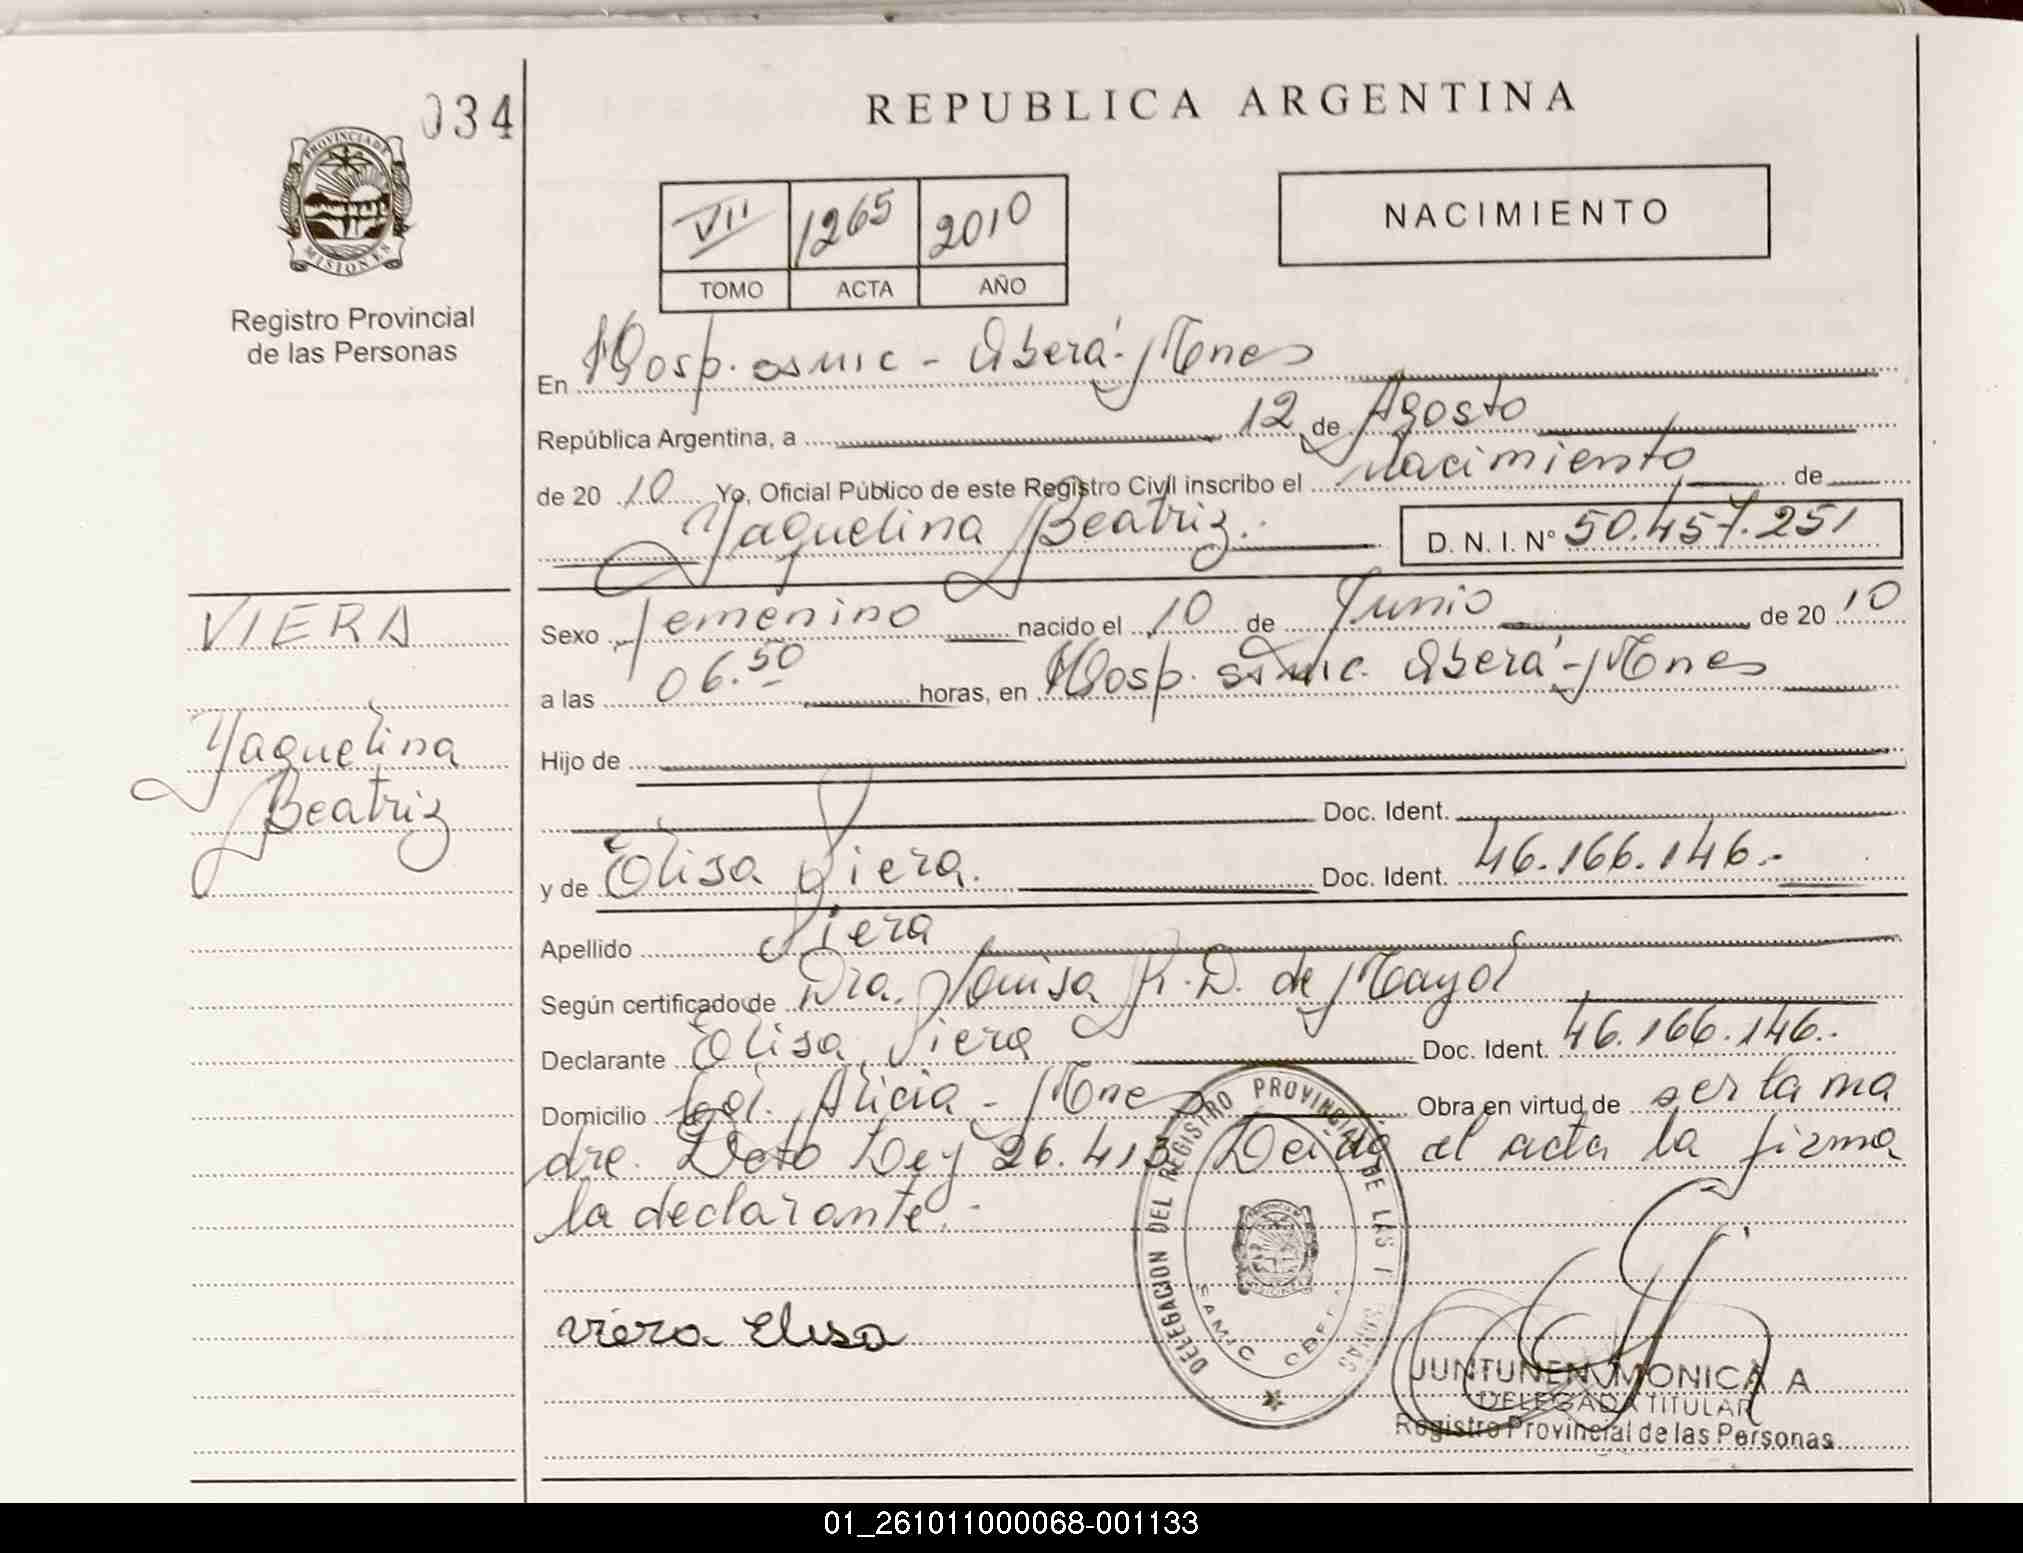 034
REPUBLICA ARGENTINA
PROVINCIA DE
MISIONES
VII 1265 2010
TOMO ACTA AÑO
NACIMIENTO
Registro Provincial
de las Personas
En Hosp. SAMIC - Oberá - Mnes
República Argentina, a 12 de Agosto
de 20 10 Yo, Oficial Público de este Registro Civil inscribo el Nacimiento de
Yaquelina Beatriz. D. N. I. N° 50.457.251
VIERA
Sexo femenino nacido el 10 de Junio de 20 10
a las 06.50 horas, en Hosp. SAMIC. Oberá - Mnes
Yaquelina
Beatriz
Hijo de
Doc. Ident.
y de Elisa Viera. Doc. Ident. 46.166.146.-
Apellido Viera
Según certificado de Dra. Luisa R. D. de Mayol
Declarante Elisa Viera Doc. Ident. 46.166.146.
Domicilio Col. Alicia - Mnes Obra en virtud de ser la ma
dre. Dcto Ley 26.413 Leida el acta la firma
la declarante.-
DELEGACION DEL REGISTRO PROVINCIAL DE LAS
SAMIC
viera Elisa
JUNTUNEN MONICA A
DELEGADA TITULAR
Registro Provincial de las Personas
01_261011000068-001133